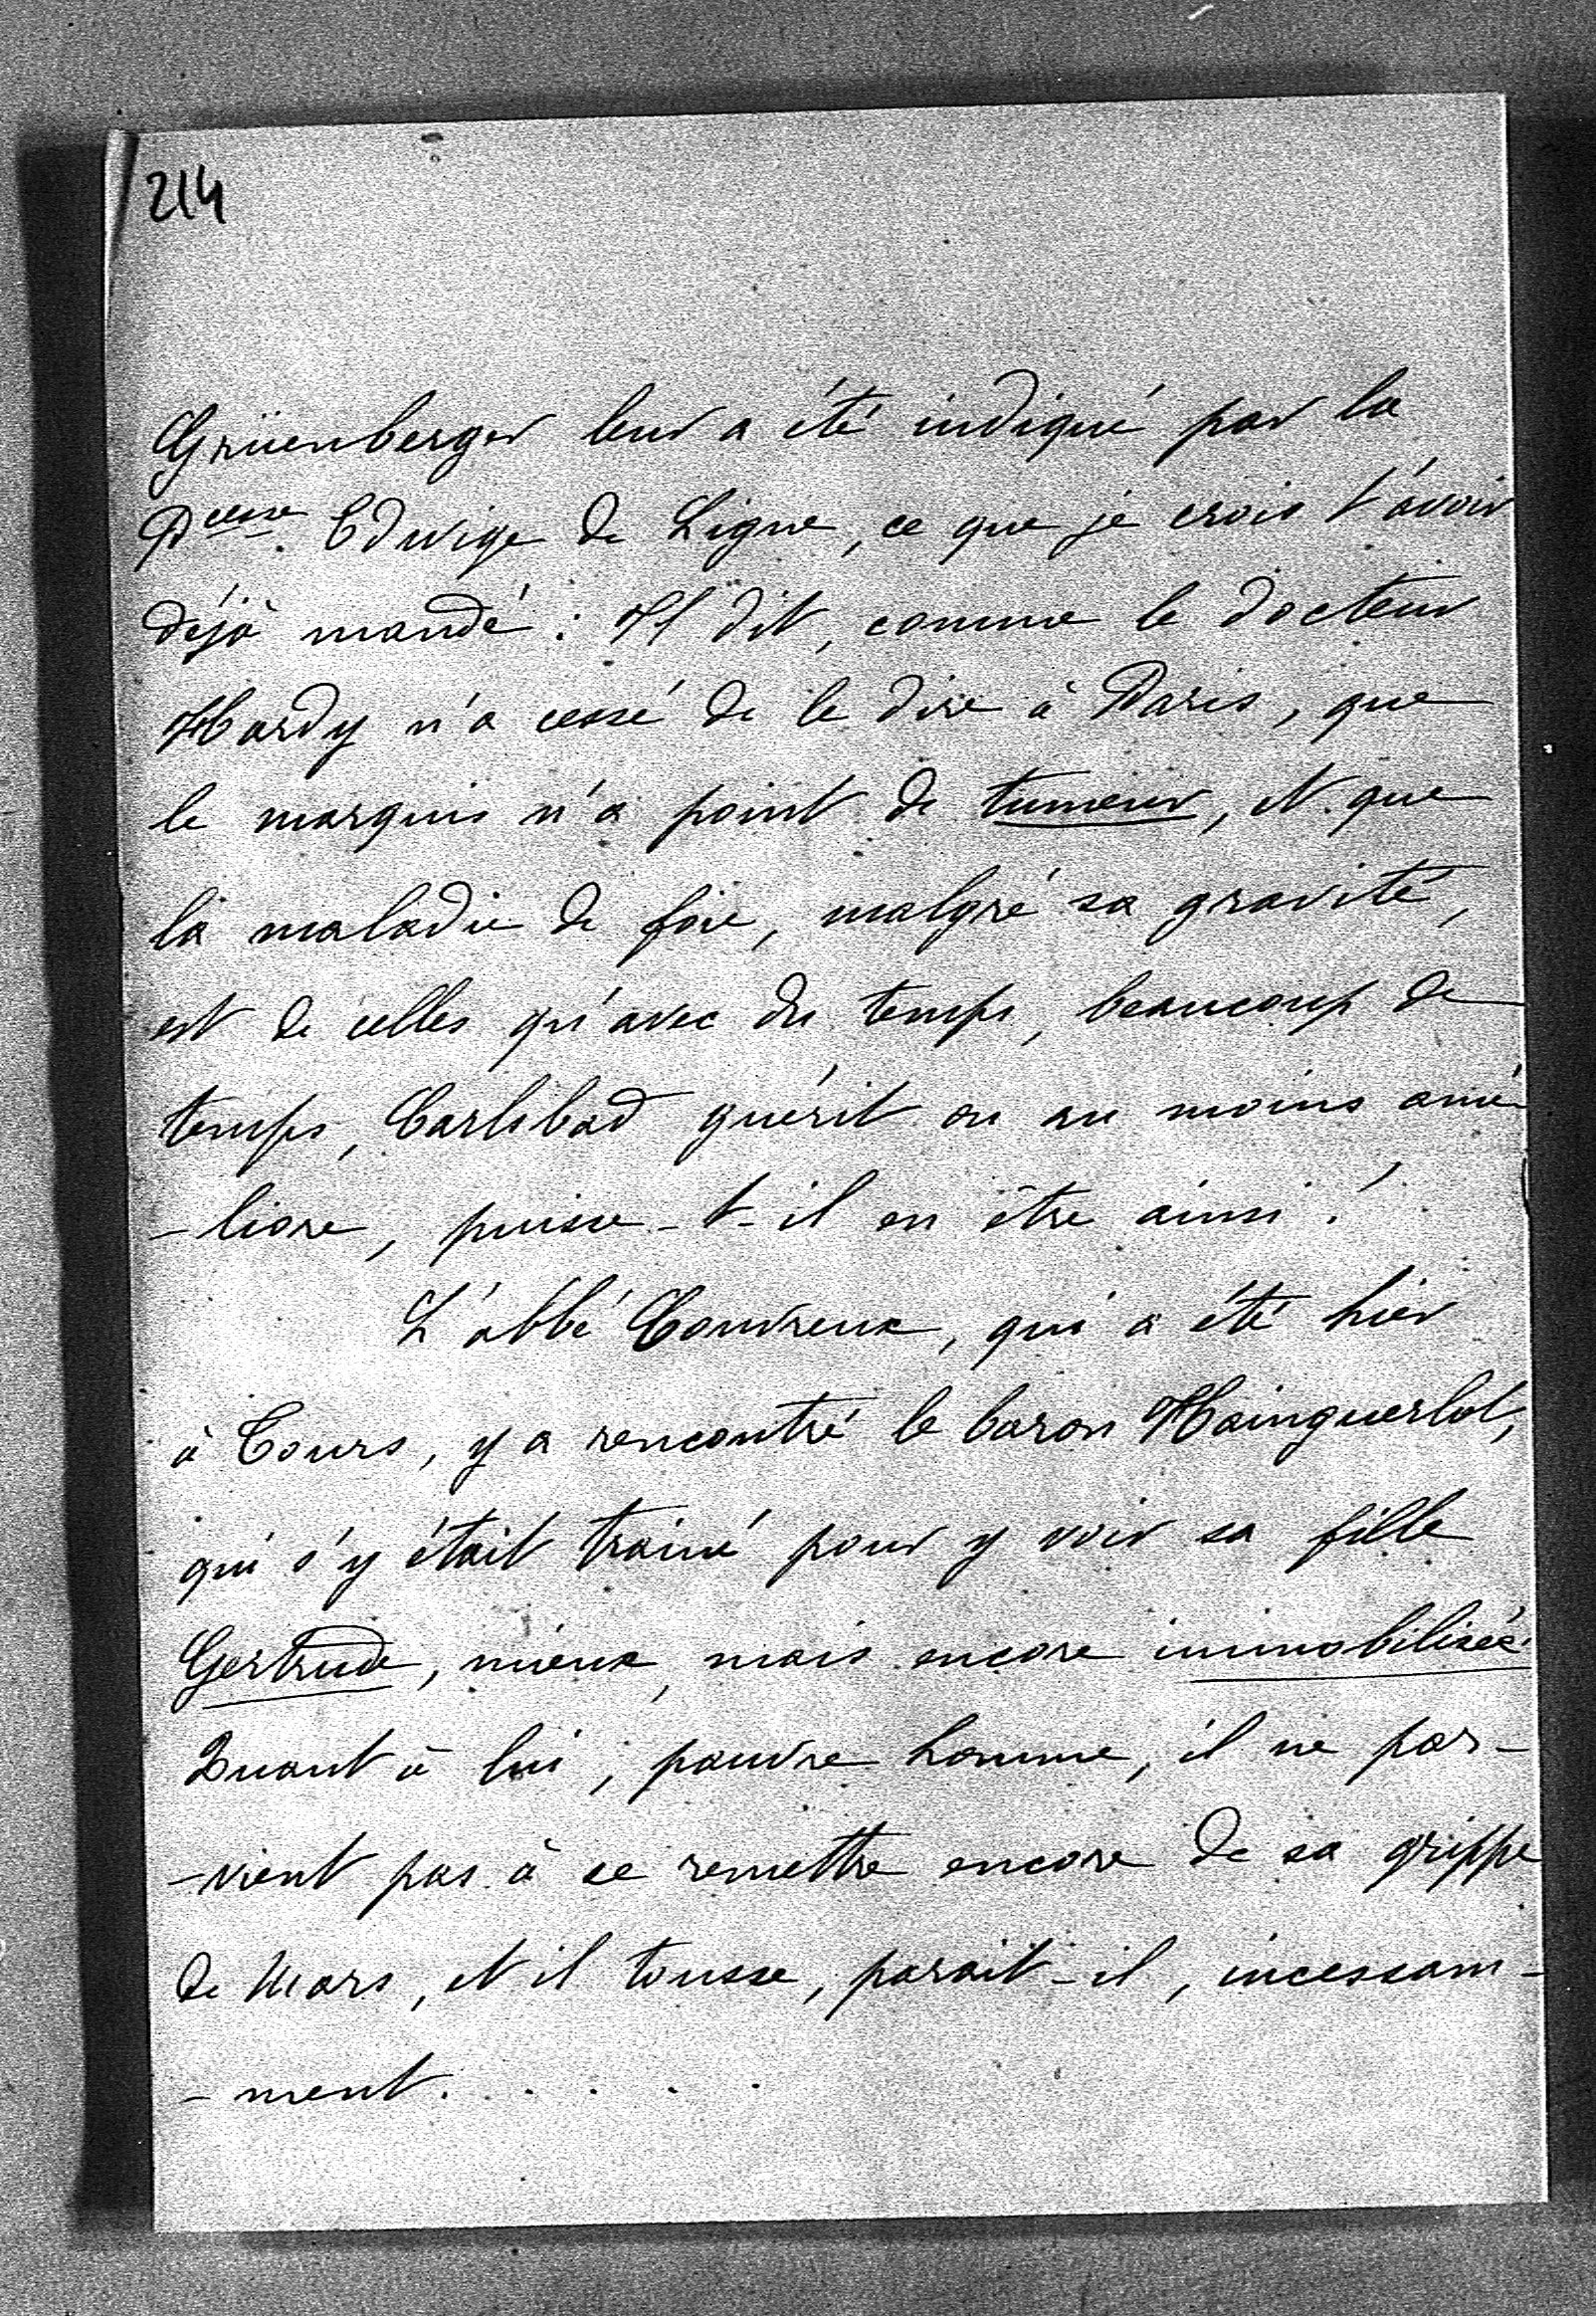 214
Grüenberger leur a été indiqué par la
Pcesse. Edwige de Ligne, ce que je crois t'avoir
déjà mandé : Il dit, comme le docteur
Hardy n'a cessé de le dire à Paris, que
le marquis n'a point de tumeur, et que
la maladie de foie, malgré sa gravité,
est de celles qu'avec du temps, beaucoup de
temps, Carlsbad guérit ou au moins amé-
-liore, puisse-t-il en être ainsi !
L'abbé Couvreux, qui a été hier
à Tours, y a rencontré le baron Hainguerlot,
qui s'y était trainé pour y voir sa fille
Gertrude, mieux, mais encore immobilisée.
Quant à lui, pauvre homme, il ne par-
-vient pas à se remettre encore de sa grippe
de Mars, et il tousse, parait-il, incessam-
-ment. . . . . .